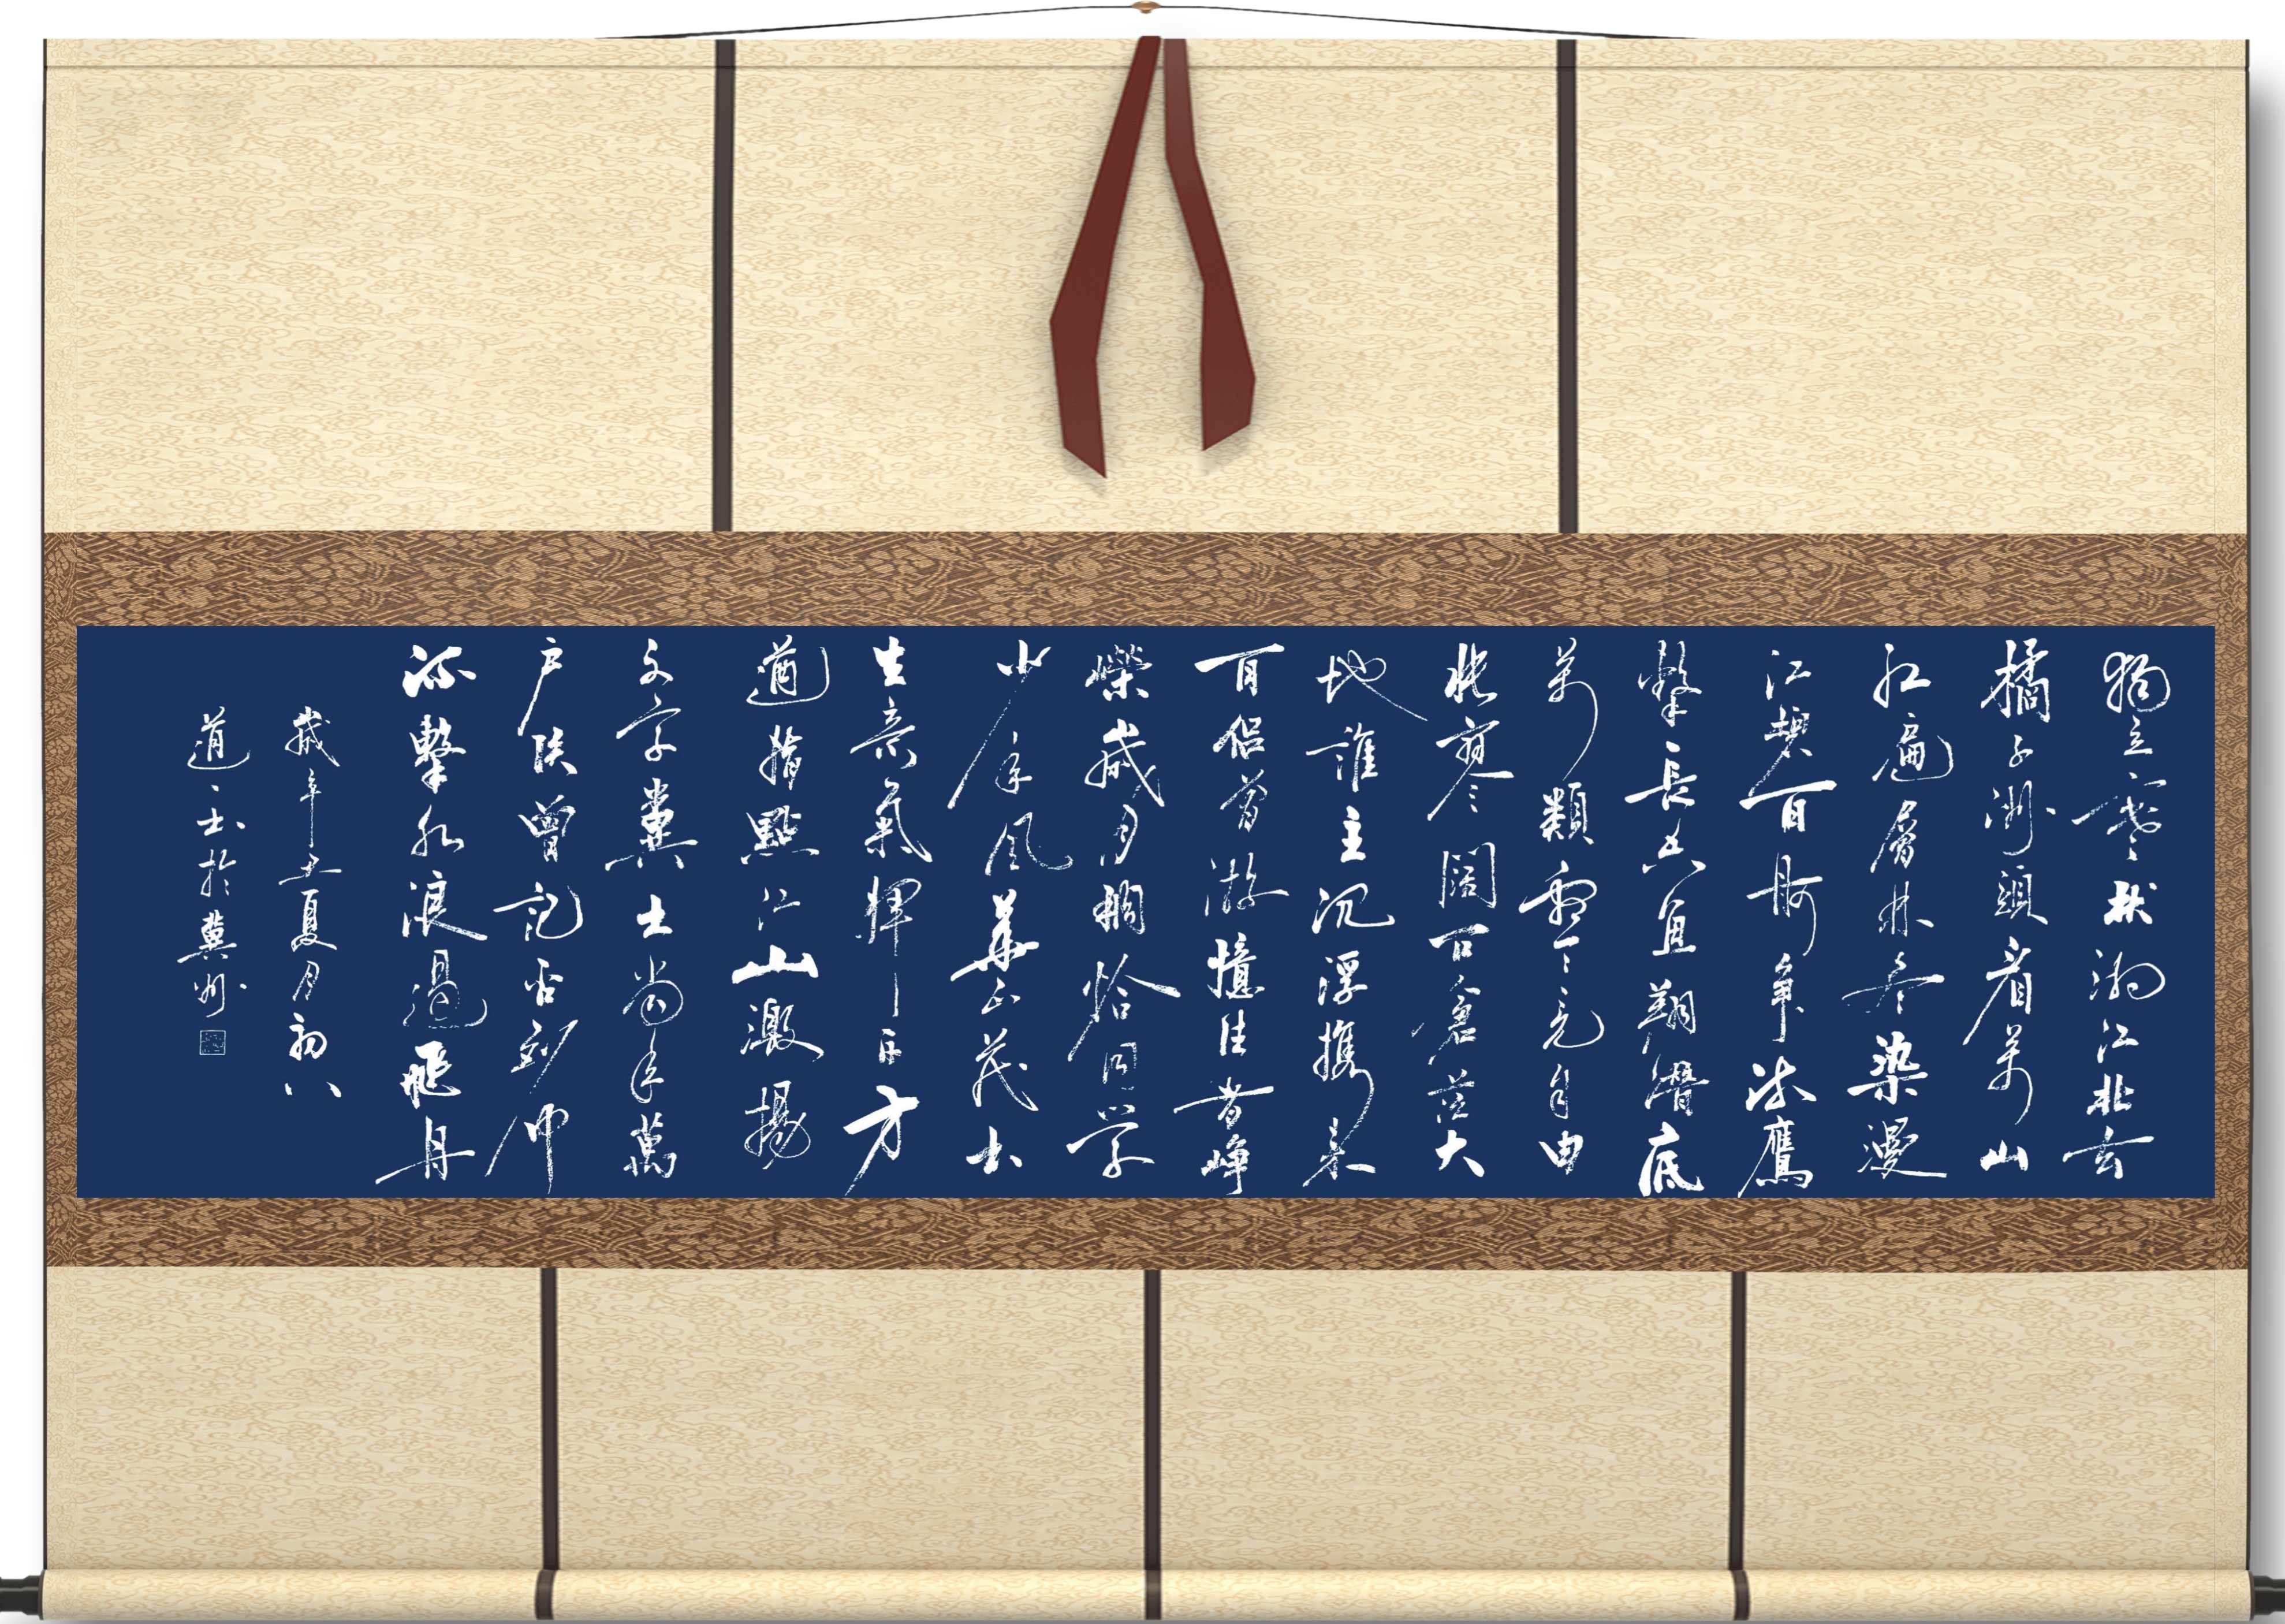 獨立寒秋湘江北去
橘子洲頭看萬山
紅遍層林盡染漫
江碧百舸争流鷹
擊長空魚翔潛底
萬類霜天竞自由
悵寥闊問蒼茫大
地誰主沉浮攜来
百侣曾游憶往昔峥
嶸歲月稠恰同学
少年風華正茂書
生意氣揮斥方
遒指點江山激揚
文字糞土當年萬
户侯曾記否到中
流擊水浪遏飛舟
歲辛丑夏月初八
道士於冀州